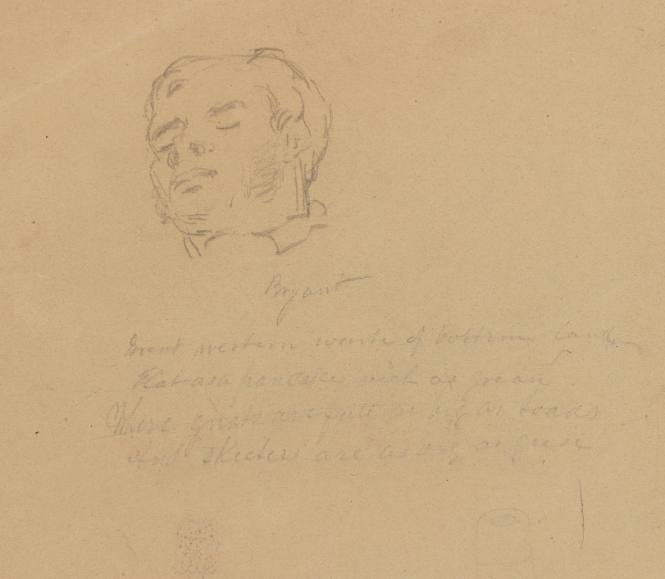 Bryant
Great western waste of bottom land
Flat as a pancake, rich as grease
Where gnats are full as big as toads
And skeeters are as big as geese